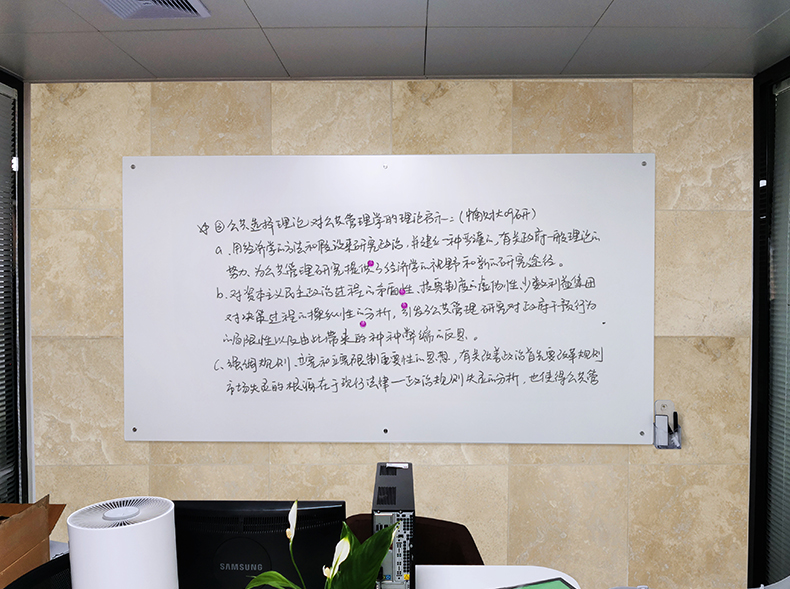 ☆ ⑤ 公共选择理论对公共管理学的理论启示：(中南财大明研)
a. 用经济学的方法和假设来研究政治，并建立一种普遍的，有关政府一般理论的
努力，为公共管理研究提供了经济学的视野和新的研究途径。
b. 对资本主义民主政治过程的片面性、投票制度的虚伪性、少数利益集团
对决策过程的操纵性的分析，引出了公共管理研究对政府干预行为
的局限性以及由此带来的种种弊端的反思。
c. 强调规则、立宪和立宪限制重要性的思想，有关改善政治首先要改革规则
市场失灵的根源在于现行法律—政治规则失灵的分析，也使得公共管
SAMSUNG